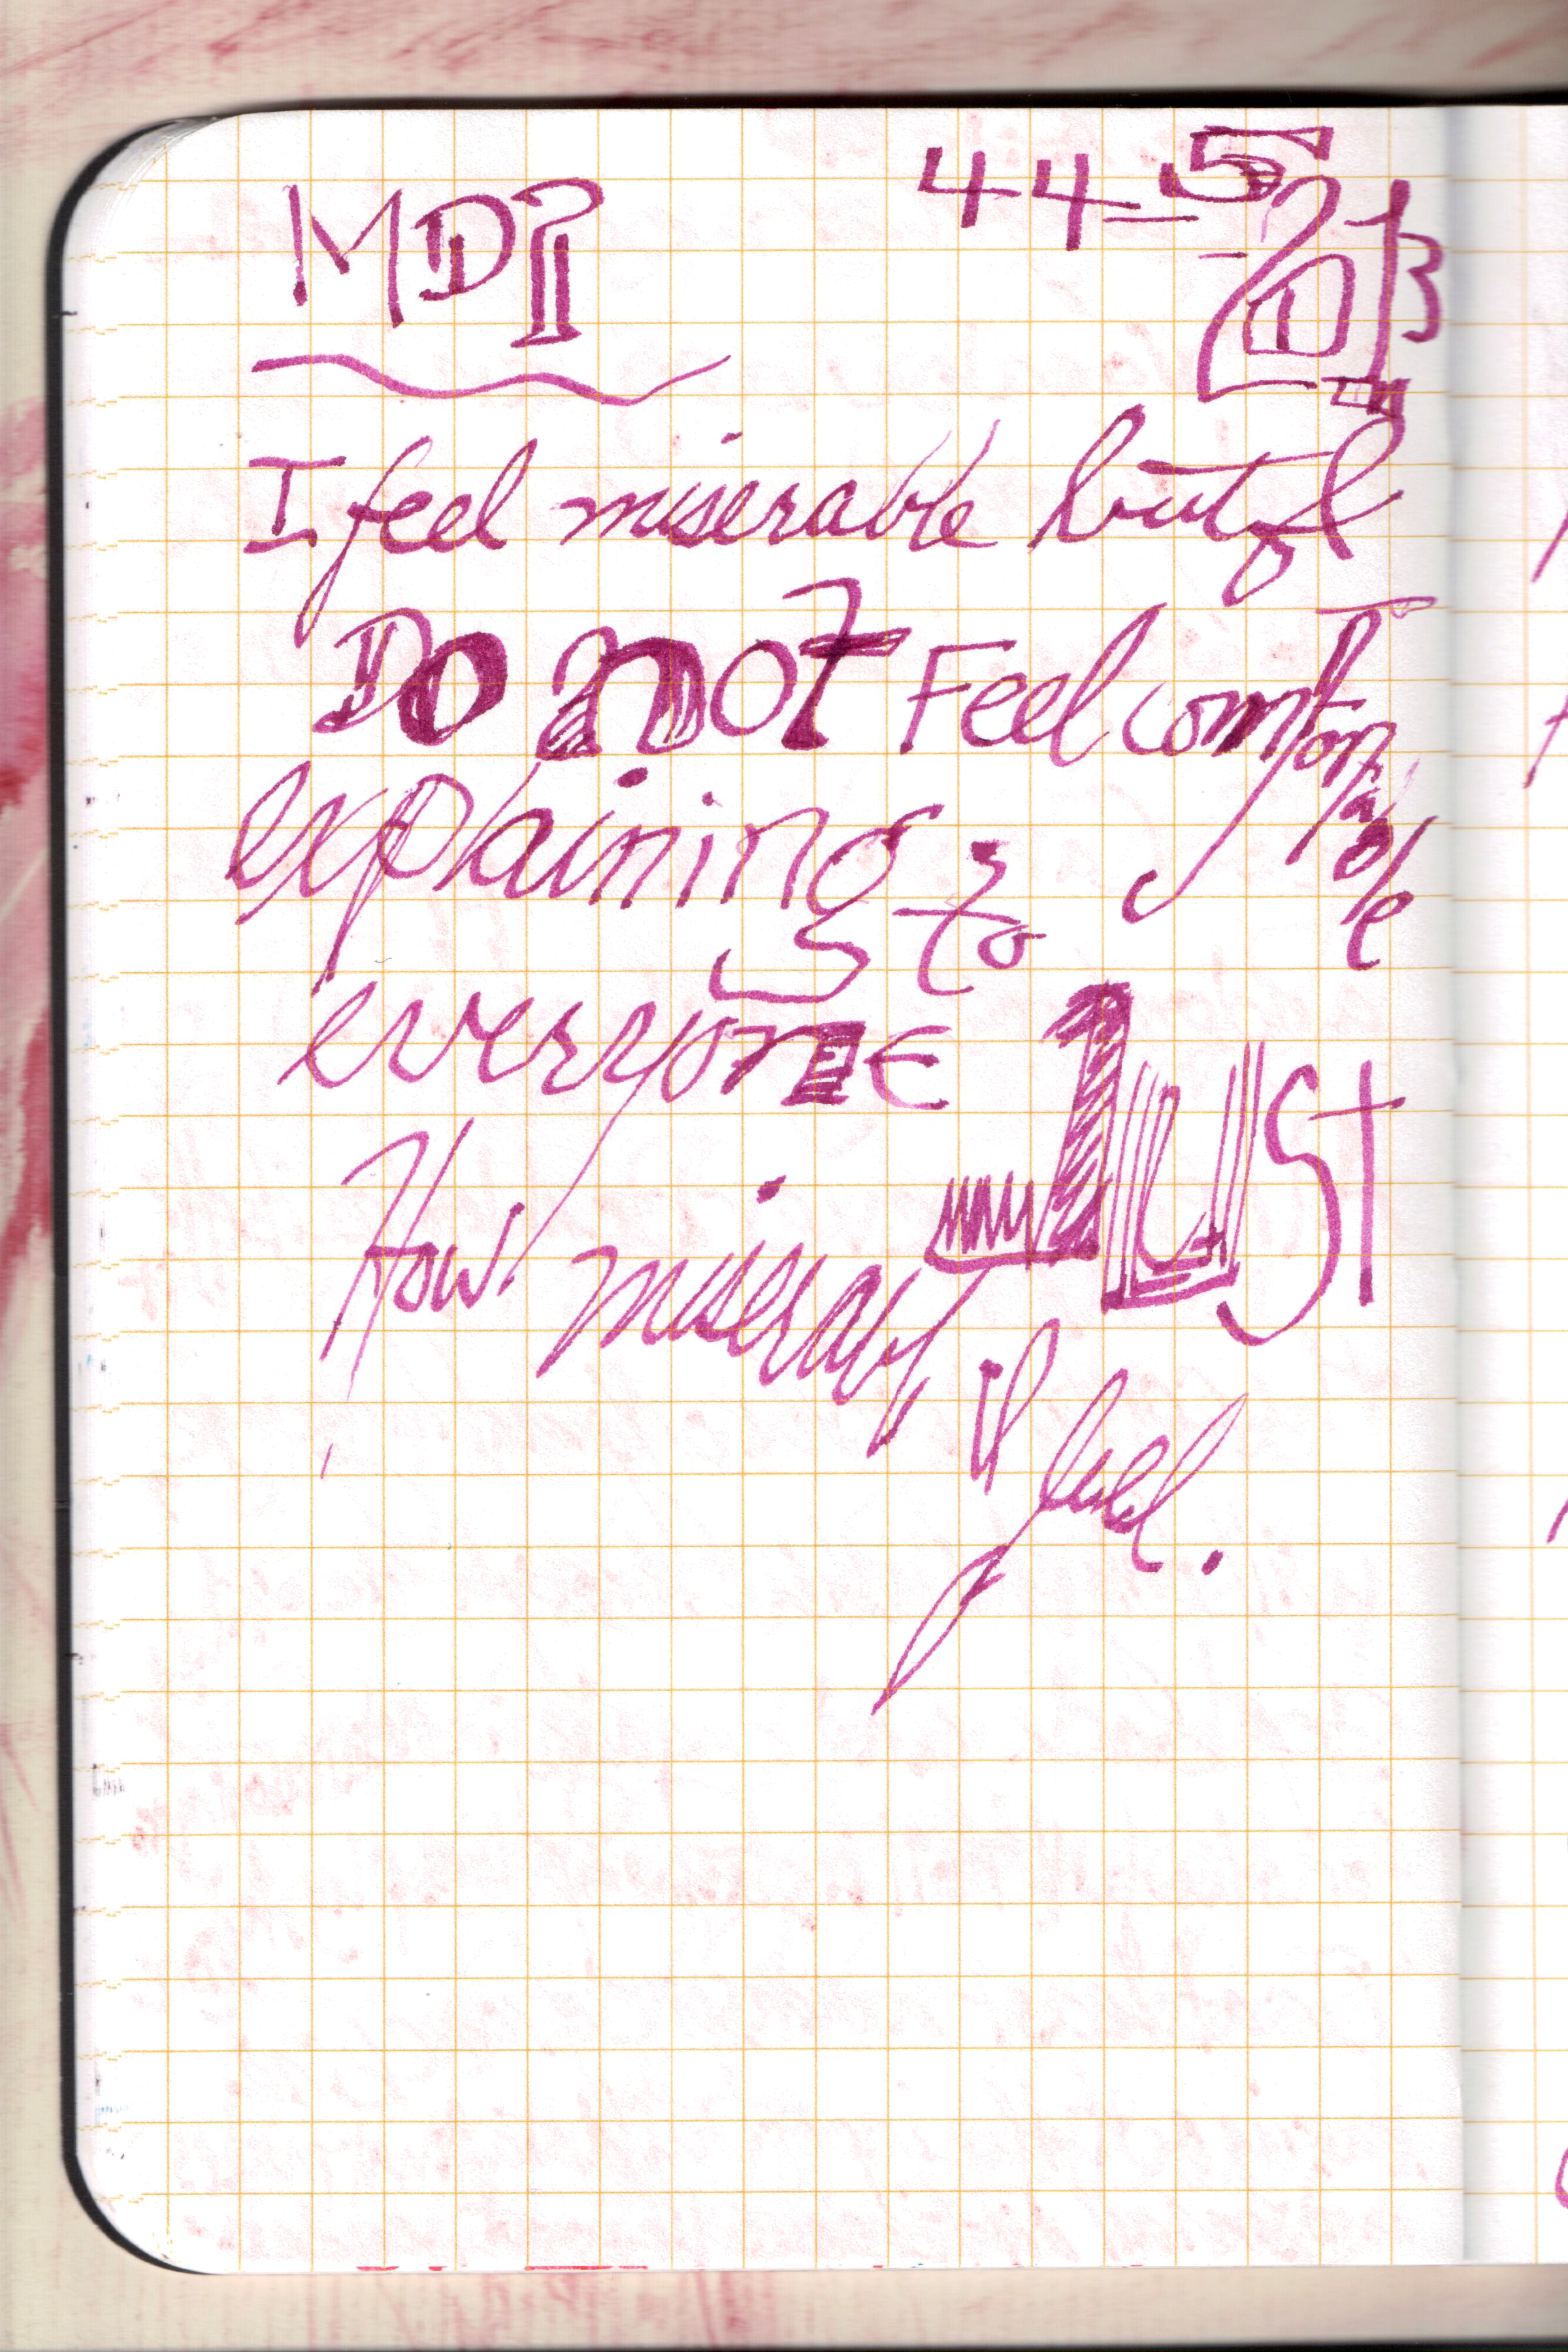 MDP 44-5
2013
I feel miserable but I
Do not Feel comfortable
explaining to
everyone JUST
How miserabl I feel.